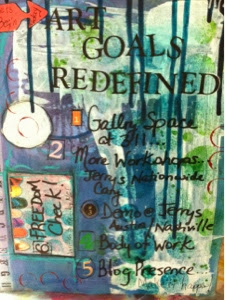 ART
GOALS
REDEFINED
1 Gallery Space
at
2
More Workshops...
Jerry's Nationwide
3 Demo @ Jerrys
Austin/Nashville
4 Body of Work
5 Blog Presence...
FREEDOM
Check!